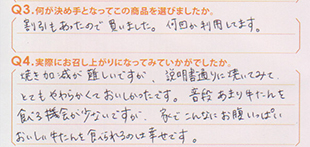 Q3.何が決め手となってこの商品を選びましたか。
割引もあったので買いました。何回か利用してます。
Q4.実際にお召し上がりになってみていかがでしたか。
焼き加減が難しいですが、説明書通りに焼いてみて、
とてもやわらかくておいしかったです。普段あまり牛たんを
食べる機会が少ないですが、家でこんなにお腹いっぱい
おいしい牛たんを食べられるのは幸せです。